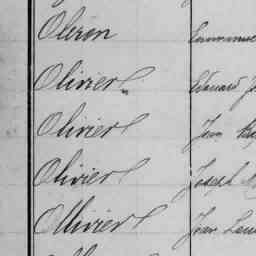 Oliron Emmanue
Olivier Edouard Jo
Olivier Jean
Olivier Joseph
Ollivier Jean Loui